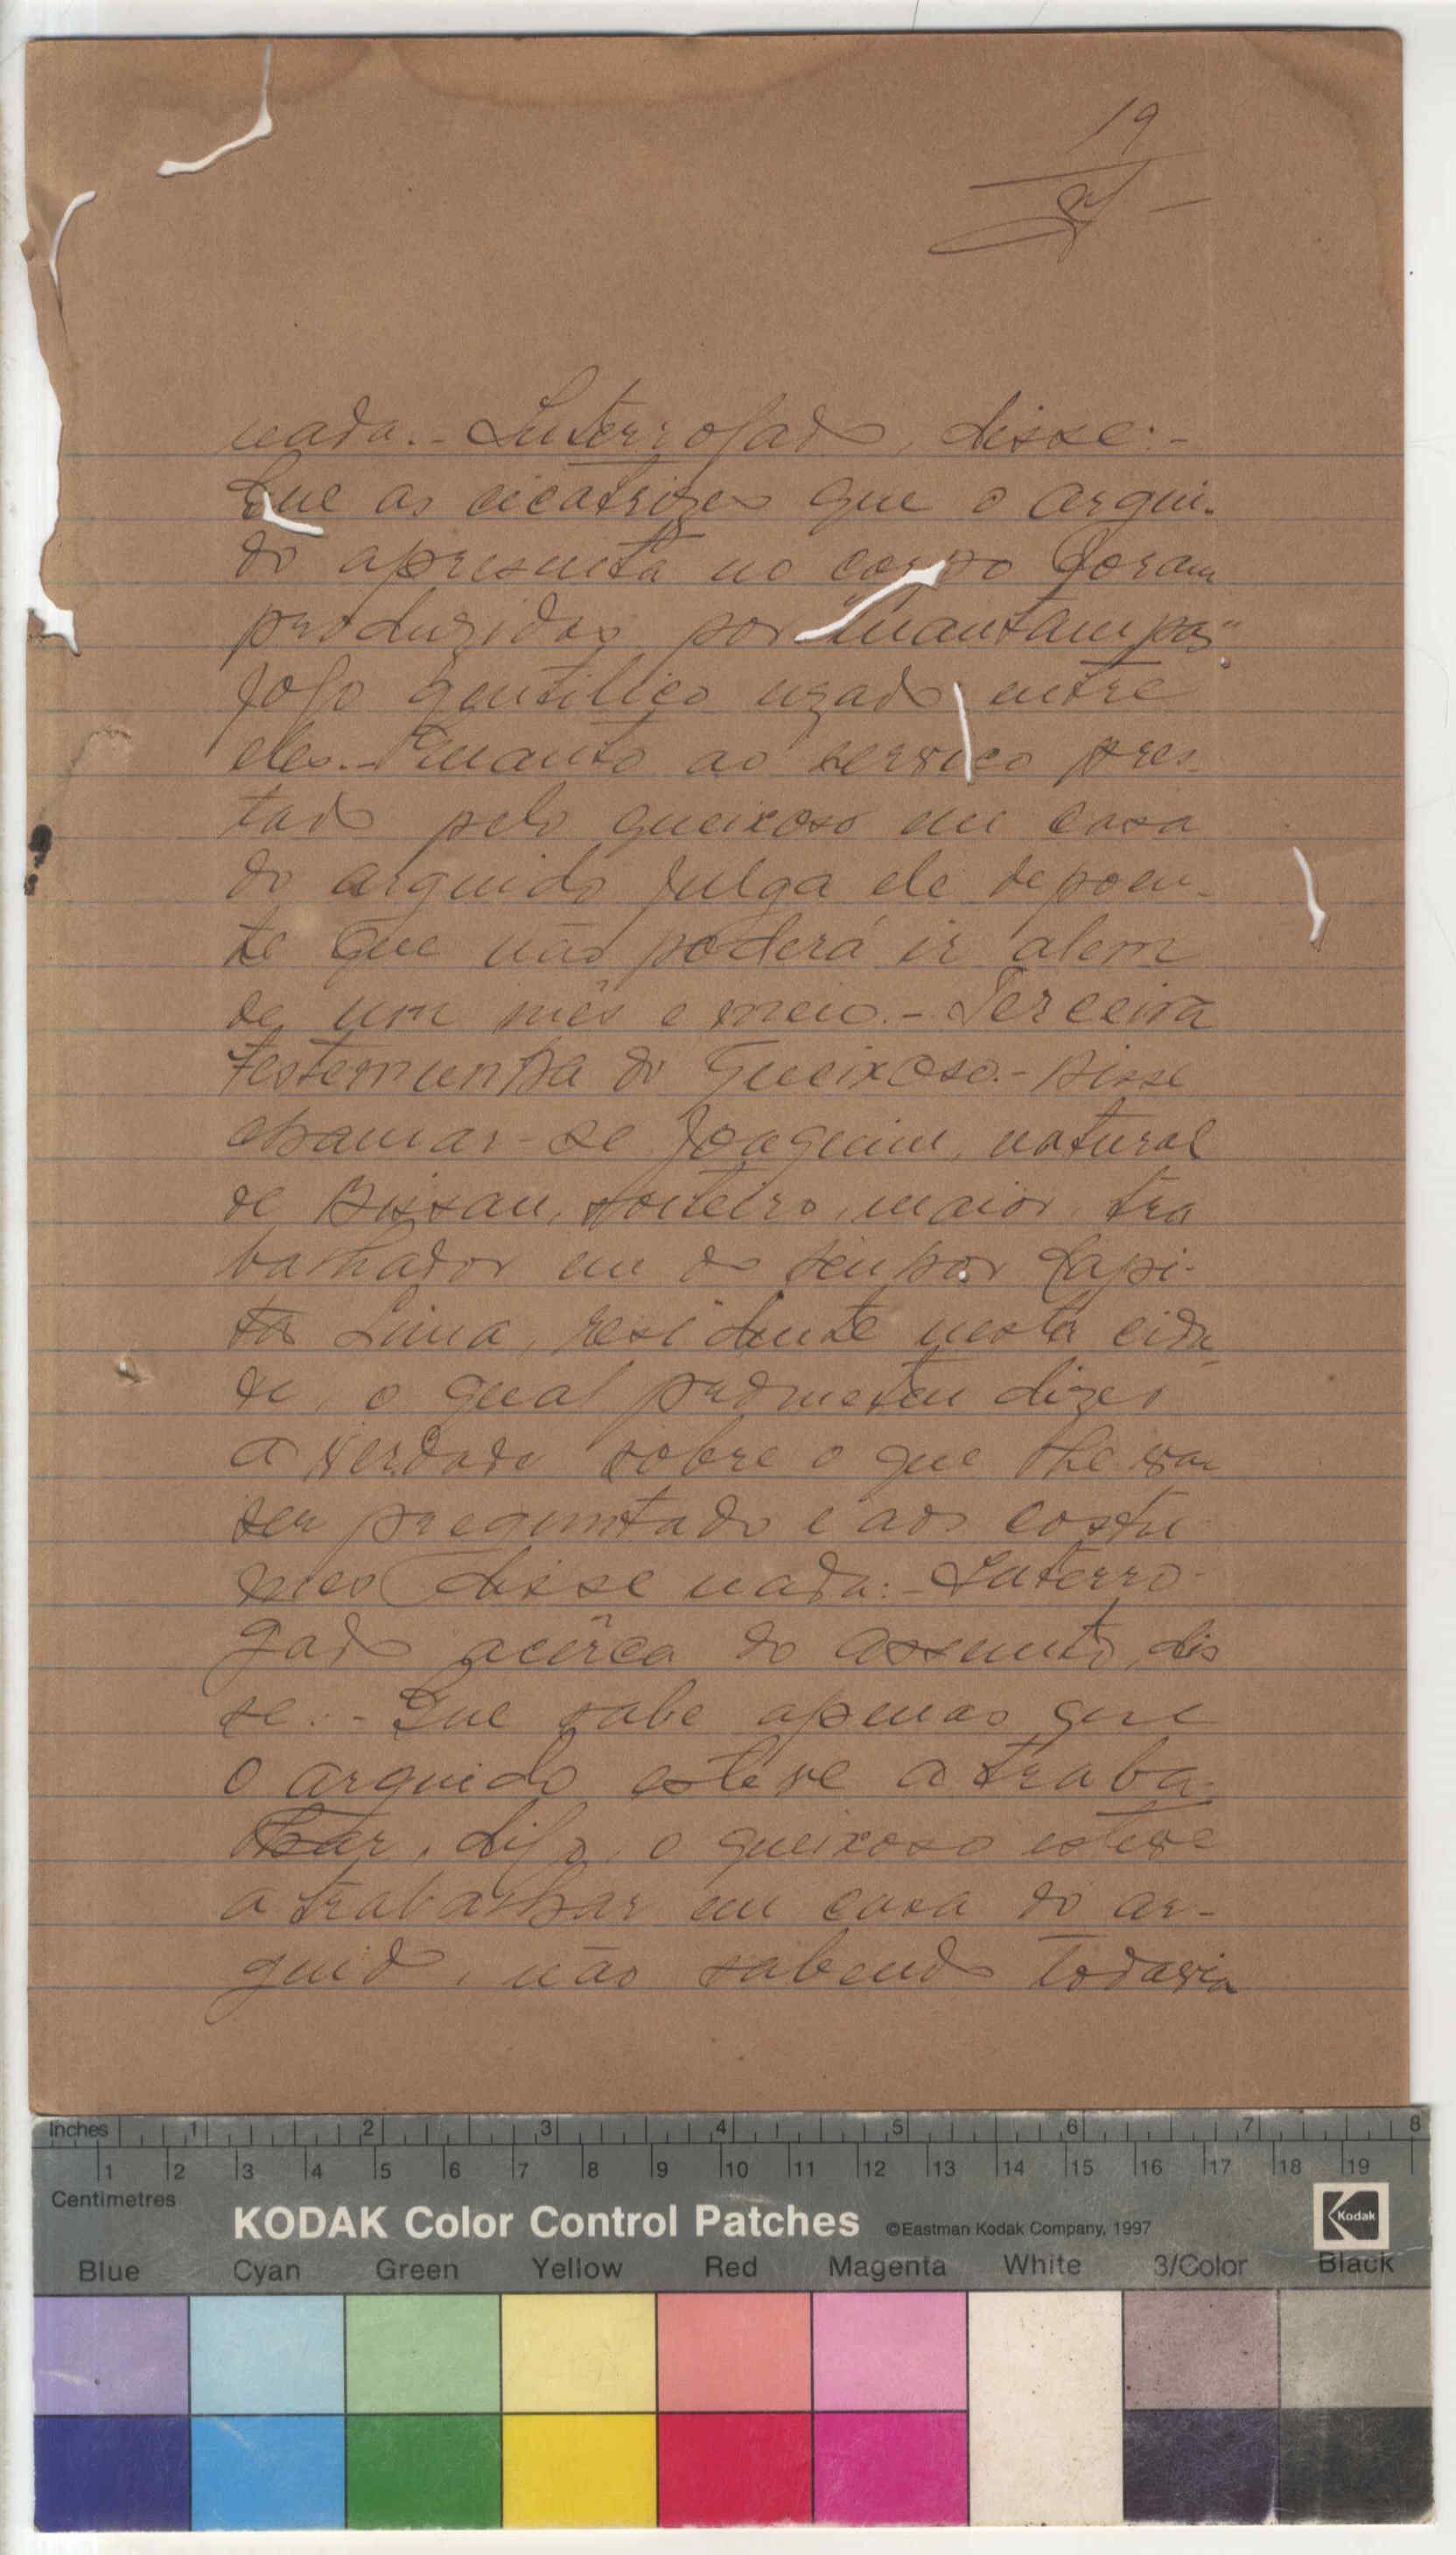 19
nada.- Interrogado, disse:-
Que as cicatrizes que o argui-
do apresenta no corpo foram
produzidas por "mantampas"
jogo gentilico uzado entre
eles.- Quanto ao serviço pres-
tado pelo queixoso em casa
do arguido julga ele depoen-
te que não poderá ir alem
de um mês e meio.- Terceira
testemunha do queixoso.- Disse
chamar-se Joaquim, natural
de Bissau, solteiro, maior, tra
balhador em do senhor
Lima, residente nesta cida
de, o qual prometeu dizer
a verdade sobre o que lhe vai
ser preguntado e aos costu-
mes disse nada:- Interro-
gado acêrca do assunto, dis
se:- Que sabe apenas que
o arguido estêve a traba-
lhar, digo, o queixoso esteve
a trabalhar em casa do ar-
guido, não sabendo todavia
Inches 1 2 3 4 5 6 7 8
1 2 3 4 5 6 7 8 9 10 11 12 13 14 15 16 17 18 19
Centimetres
KODAK Color Control Patches ©Eastman Kodak Company, 1997 Kodak
Blue Cyan Green Yellow Red Magenta White 3/Color Black